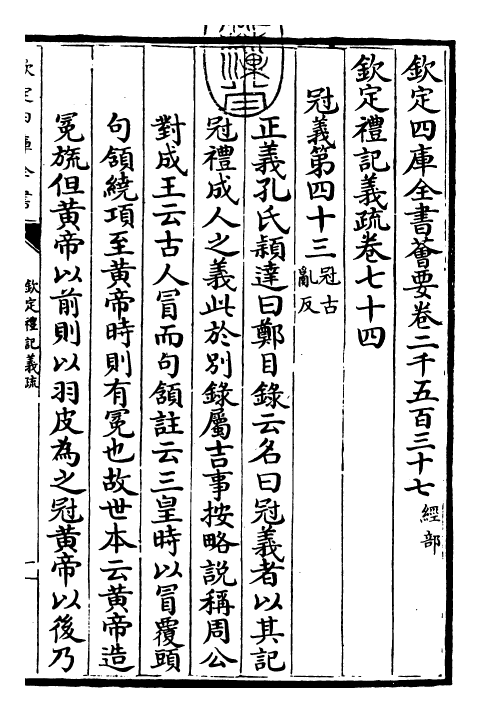 欽定四庫全書薈要卷二千五百三十七 經部
欽定禮記義疏卷七十四
冠義第四十三 冠古亂反
正義孔氏穎達曰鄭目錄云名曰冠義者以其記
冠禮成人之義此於別錄屬吉事按略說稱周公
對成王云古人冒而句領註云三皇時以冒覆頭
句領繞項至黃帝時則有冕也故世本云黃帝造
冕旒但黃帝以前則以羽皮為之冠黃帝以後乃
欽定四庫全書
欽定禮記義疏
一